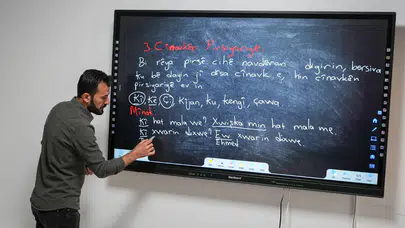 3. Cînavkên Pirsiyariyê
Bi rêya pirsê cihê navdêran digirin, bersiva
ku bê dayîn jî dîsa cînavk e, hin cînavkên
pirsiyariyê ev in
Kî Kê Çi Kîjan, ku, kengî, çawa
Mînak
Kî hat mala we? Xwişka min hat mala me.
Kî xwarin dixwe? Ew xwarin dixwe
Ehmed